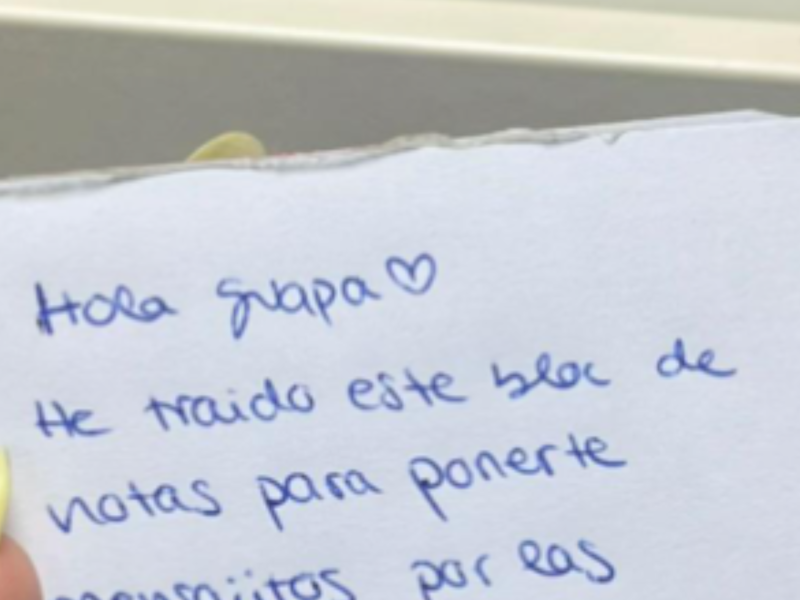 Hola guapa♡
He traido este bloc de
notas para ponerte
mensajitos por las